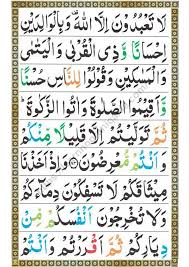 لَا تَعْبُدُوْنَ اِلَّا اللّٰهَ وَبِالْوَالِدَيْنِ
اِحْسَانًا وَّذِى الْقُرْبٰى وَالْيَتٰمٰى
وَالْمَسٰكِيْنِ وَقُوْلُوْا لِلنَّاسِ حُسْنًا
وَّاَقِيْمُوا الصَّلٰوةَ وَاٰتُوا الزَّكٰوةَ ؕ
ثُمَّ تَوَلَّيْتُمْ اِلَّا قَلِيْلًا مِّنْكُمْ
وَاَنْتُمْ مُّعْرِضُوْنَ ۝ وَاِذْ اَخَذْنَا
مِيْثَاقَكُمْ لَا تَسْفِكُوْنَ دِمَآءَكُمْ
وَلَا تُخْرِجُوْنَ اَنْفُسَكُمْ مِّنْ
دِيَارِكُمْ ثُمَّ اَقْرَرْتُمْ وَاَنْتُمْ